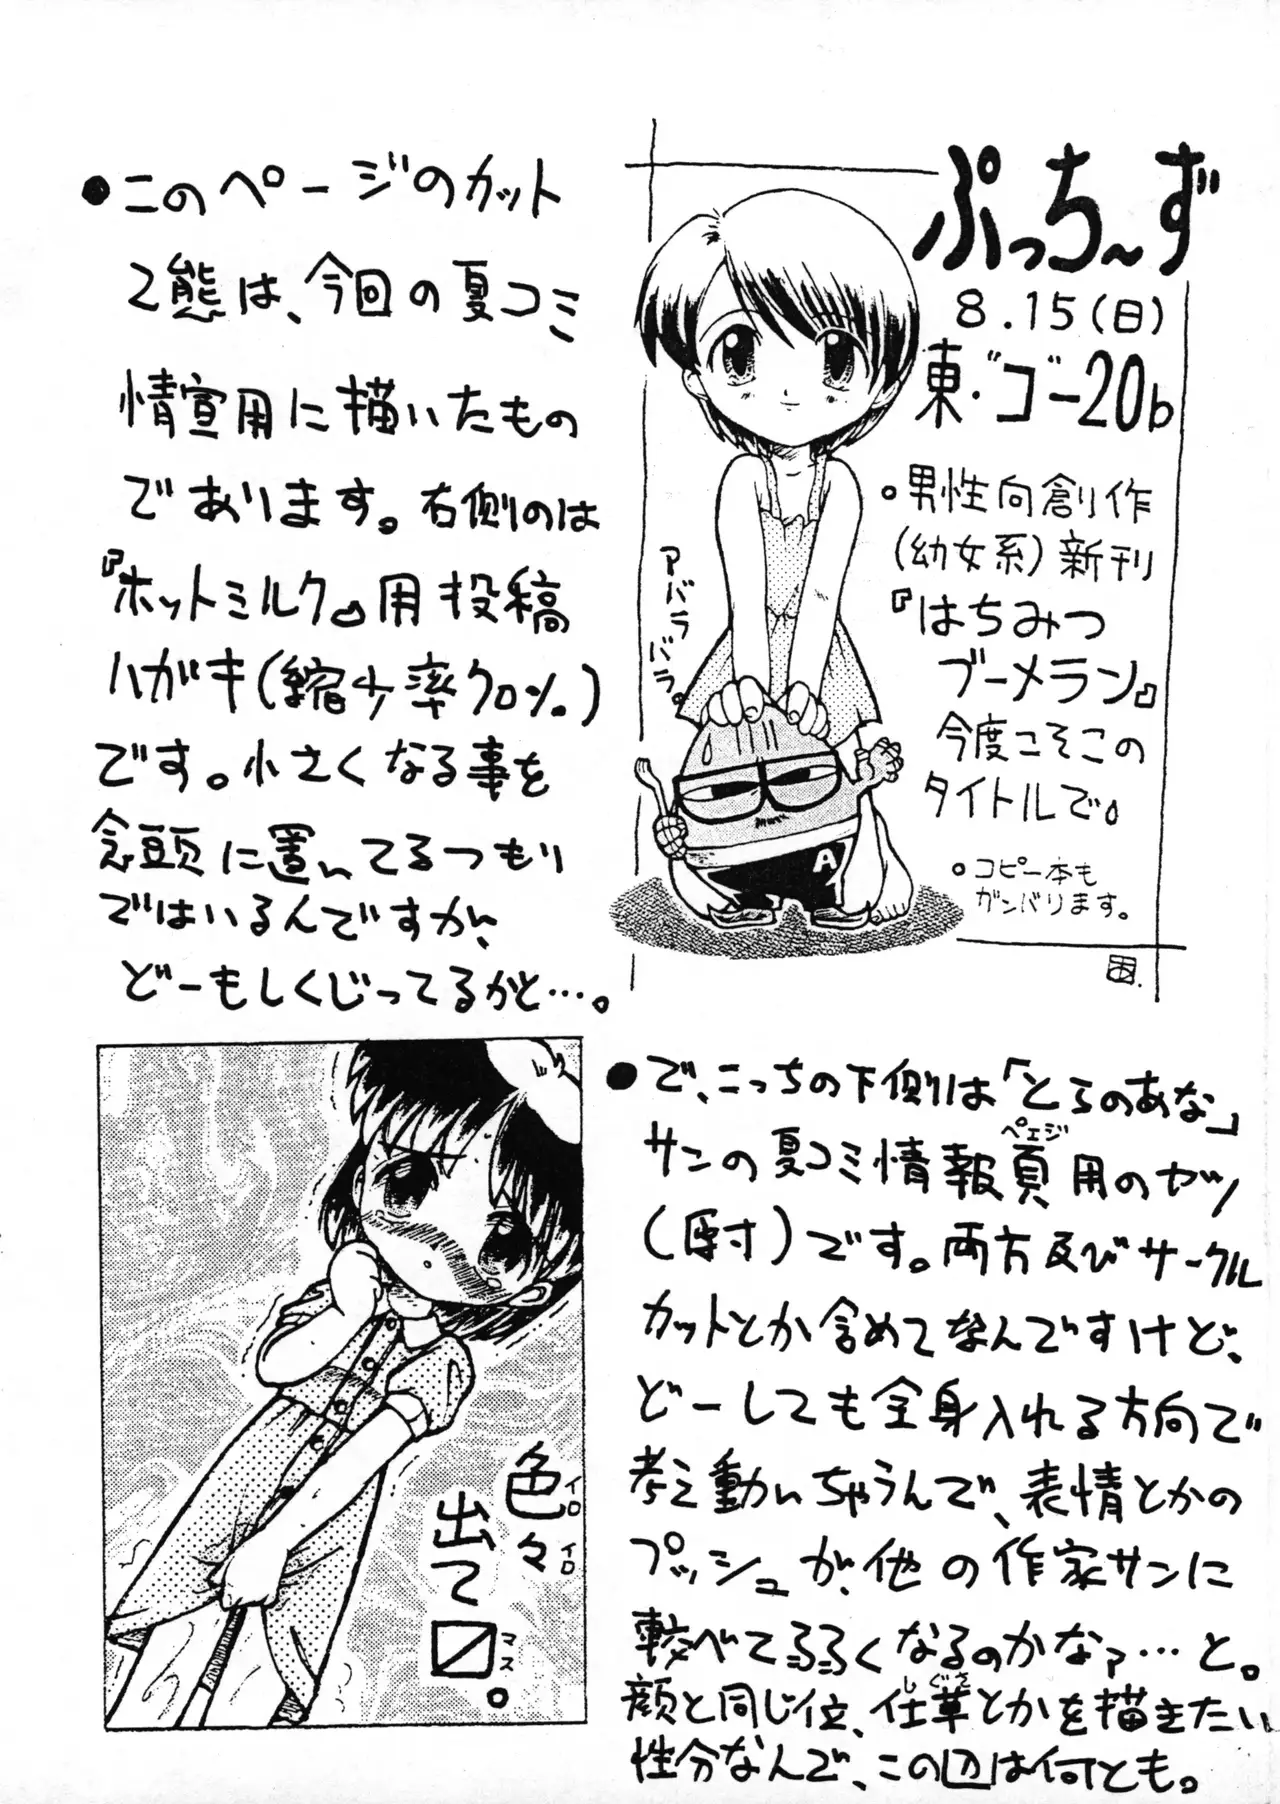 ●このページのカット
2態は、今回の夏コミ
情宣用に描いたもの
であります。右側のは
『ホットミルク』用投稿
ハガキ(縮少率70%)
です。小さくなる事を
念頭に置いてるつもり
ではいるんですが、
どーもしくじってるかと…。
ぷっち〜ず
8.15(日)
東・"ゴ"-20b
○男性向創作
(幼女系)新刊
『はちみつ
ブーメラン』
今度こそこの
タイトルで。
○コピー本も
ガンバります。
アバラ
バラ。
A
●で、こっちの下側は「とらのあな」
サンの夏コミ情報頁用のヤツ
ペェジ
(原寸)です。両方及びサークル
カットとか含めてなんですけど、
どーしても全身入れる方向で
考え動いちゃうんで、表情とかの
プッシュが、他の作家サンに
較べて弱くなるのかなァ…と。
顔と同じ位、仕草とかを描きたい
しぐさ
性分なんで、この辺は何とも。
色々
イロイロ
出て
〼。
マス